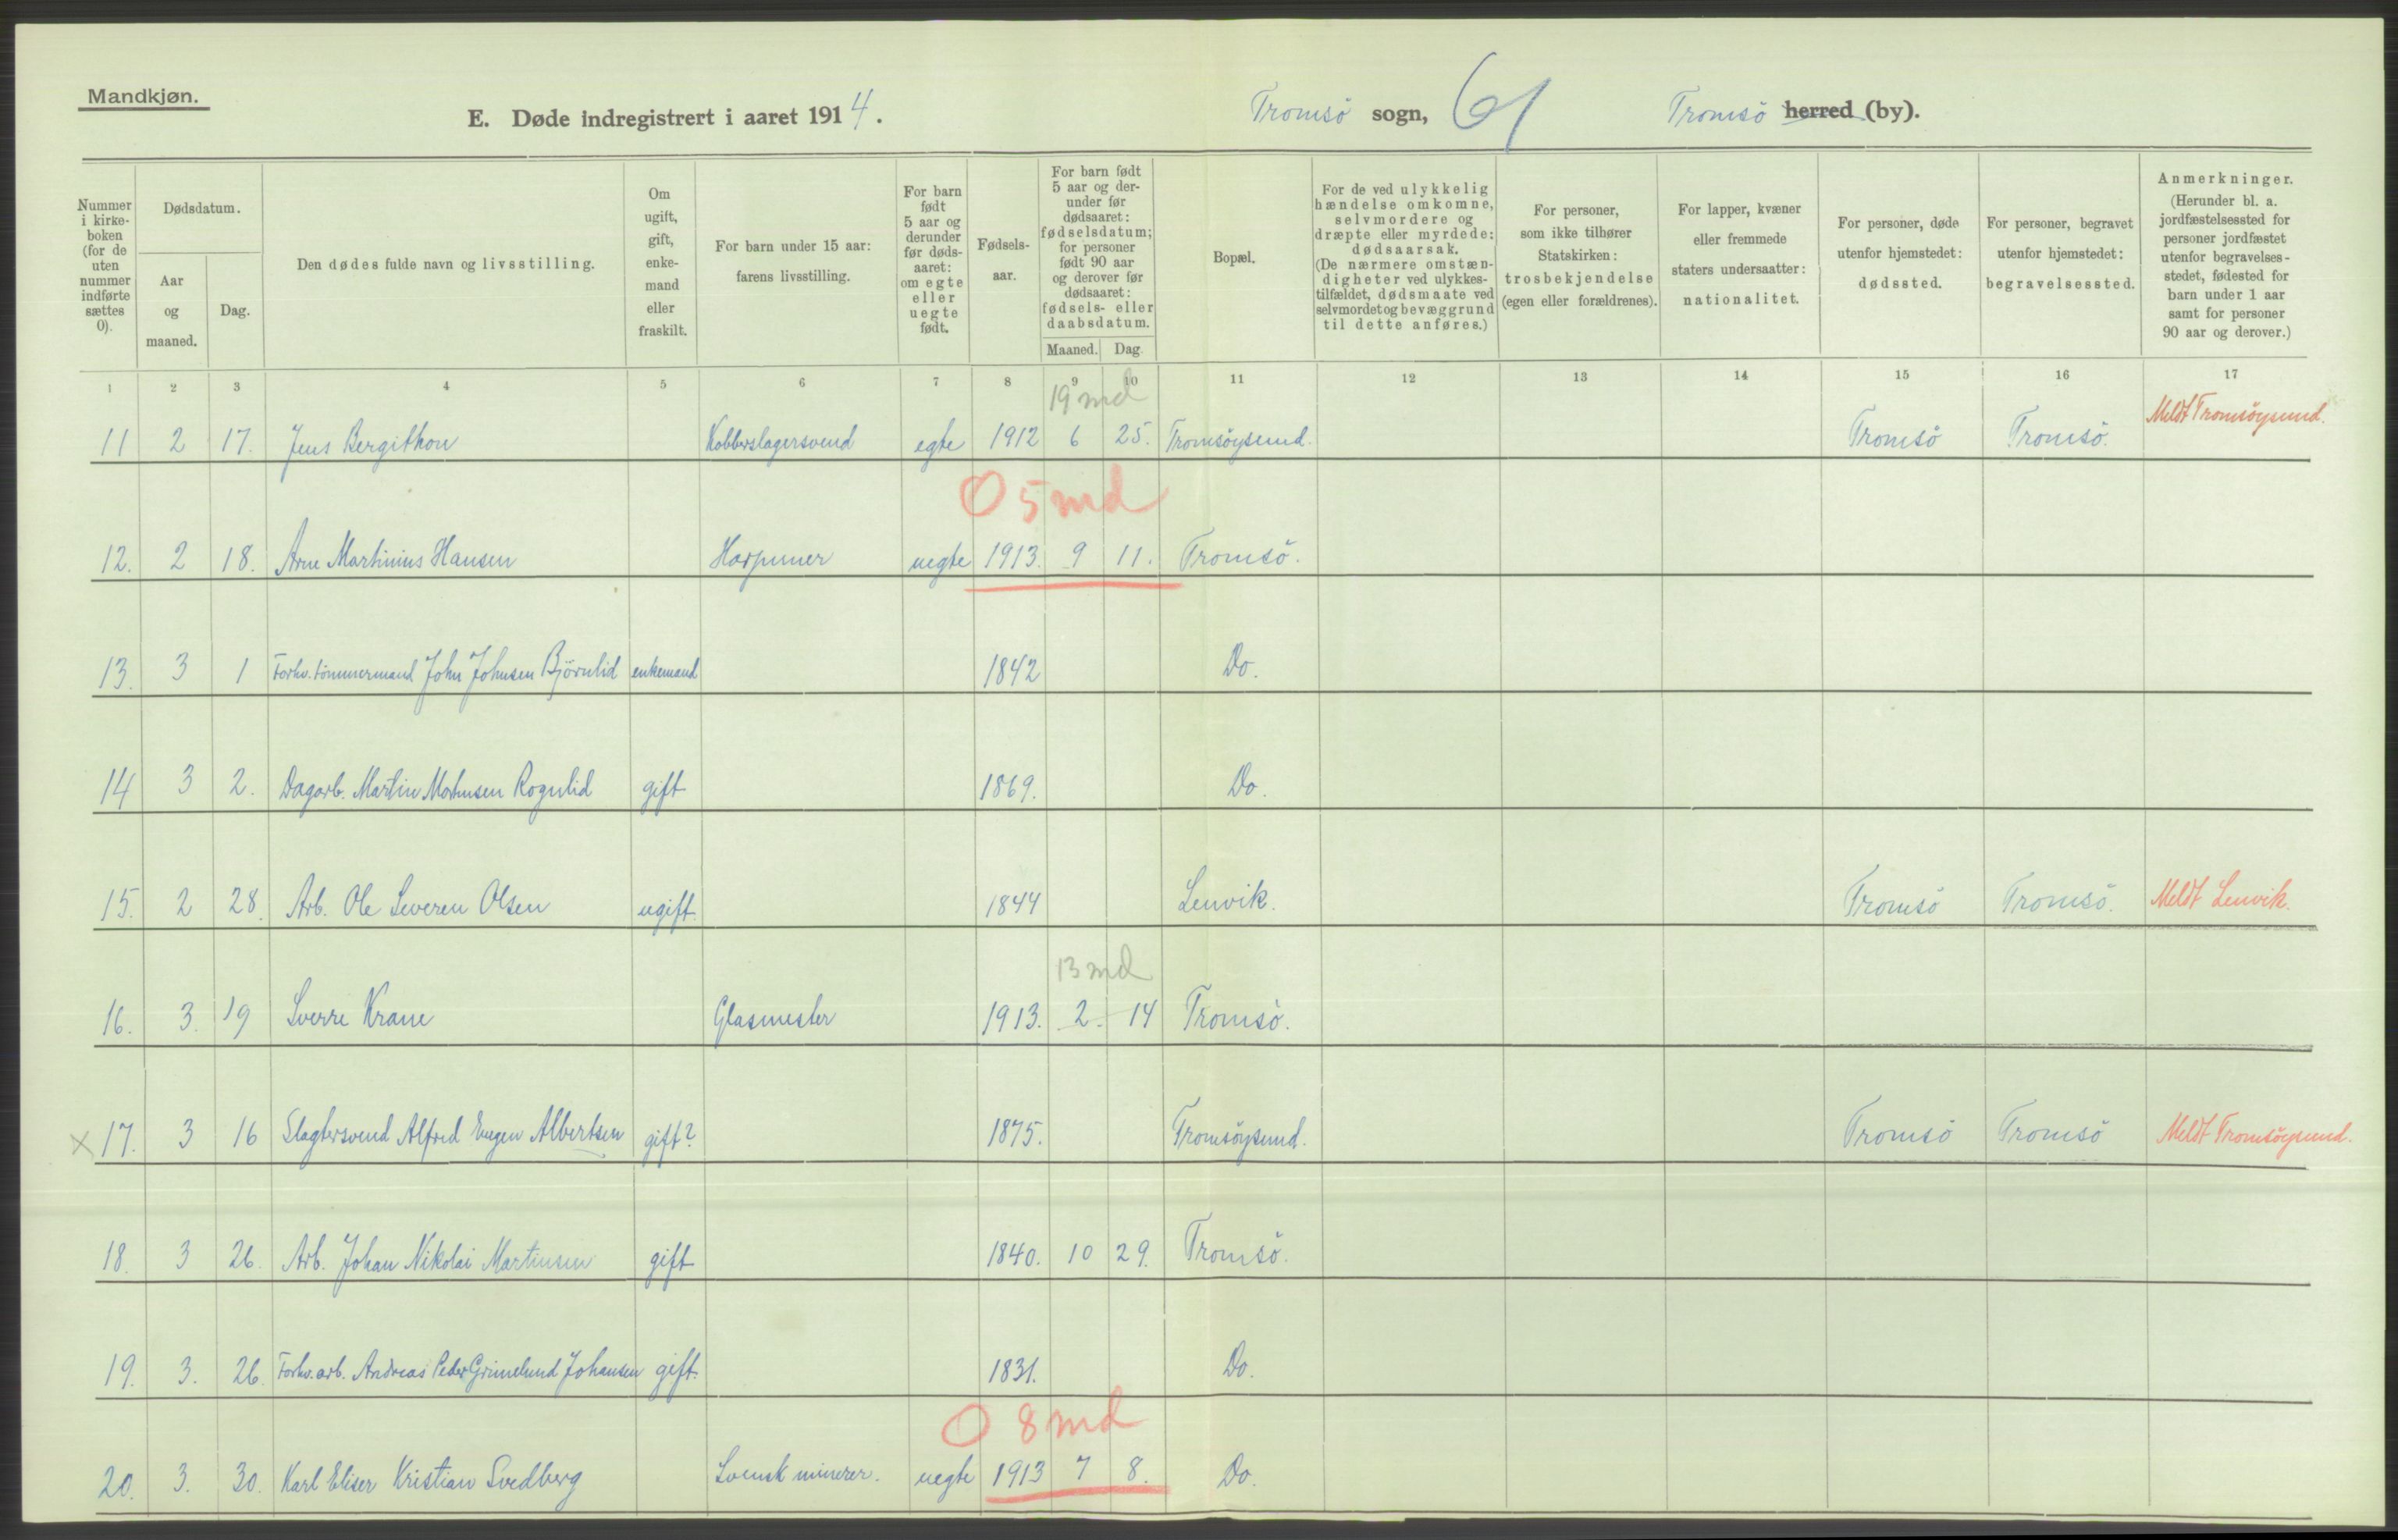 Mandkjøn.
E. Døde indregistrert i aaret 1914.
Tromsö sogn, 61 Tromsö herred (by).
Nummer i kirkeboken (for de uten nummer indførte sættes 0).
Dødsdatum.
Aar og maaned.
Dag.
Den dødes fulde navn og livsstilling.
Om ugift, gift, enkemand eller fraskilt.
For barn under 15 aar: farens livsstilling.
For barn født 5 aar og derunder før dødsaaret: om egte eller uegte født.
Fødselsaar.
For barn født 5 aar og derunder før dødsaaret: fødselsdatum; for personer født 90 aar og derover før dødsaaret: fødsels- eller daabsdatum.
Maaned. Dag.
Bopæl.
For de ved ulykkelig hændelse omkomne, selvmordere og dræpte eller myrdede: dødsaarsak. (De nærmere omstændigheter ved ulykkestilfældet, dødsmaate ved selvmordet og bevæggrund til dette anføres.)
For personer, som ikke tilhører Statskirken: trosbekjendelse (egen eller forældrenes).
For lapper, kvæner eller fremmede staters undersaatter: nationalitet.
For personer, døde utenfor hjemstedet: dødssted.
For personer, begravet utenfor hjemstedet: begravelsessted.
Anmerkninger. (Herunder bl. a. jordfæstelsessted for personer jordfæstet utenfor begravelsesstedet, fødested for barn under 1 aar samt for personer 90 aar og derover.)
1 2 3 4 5 6 7 8 9 10 11 12 13 14 15 16 17
19 md
11 2 17. Jens Bergithon Kobberslagersvend egte 1912 6 25. Tromsöysund. Tromsö Tromsö. Meldt Tromsöysund.
0 5 md
12. 2 18. Arne Martinius Hansen Harpuner uegte 1913. 9 11. Tromsö.
13. 3 1 Forhv. tömmermand John Johnsen Björnlid enkemand 1842 Do.
14 3 2. Dagarb. Martin Mortensen Rognlid gift 1869. Do.
15. 2 28. Arb. Ole Severen Olsen ugift 1844 Lenvik. Tromsö Tromsö. Meldt Lenvik.
13 md
16. 3. 19 Sverre Krane Glasmester 1913. 2. 14 Tromsö.
x 17. 3 16 Slagtersvend Alfred Eugen Albertsen gift? 1875. Tromsöysund. Tromsö Tromsö Meldt Tromsöysund.
18. 3 26. Arb. Johan Nikolai Martinsen gift 1840. 10 29. Tromsö.
19. 3. 26. Forhv. arb. Andreas Peder Grimelund Johansen gift 1831. Do.
0 8 md
20. 3. 30. Karl Eliser Kristian Svedberg Svensk minerer. uegte 1913 7 8. Do.